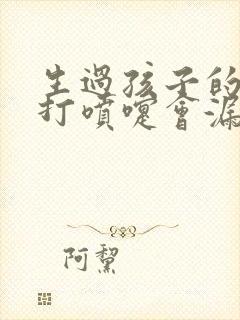 生過孩子的
打噴嚏會漏
阿黧